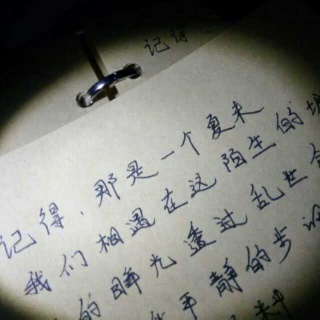 记得
记得，那是一个夏末
我们相遇在这陌生的城
的眸光透过乱世
平静的步